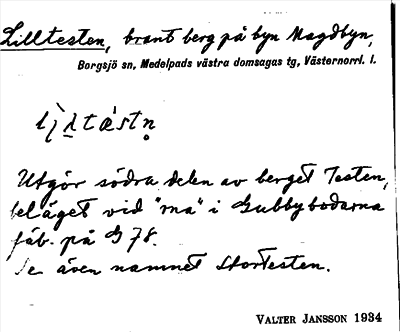 Lilltesten, brant berg på byn Magdbyn,
Borgsjö sn, Medelpads västra domsagas tg, Västernorrl. l.
Utgör södra delen av berget Testen,
beläget vid "ma" i Gubbybodarna
fäb. på G 78.
Se även namnet Stortesten.
VALTER JANSSON 1934